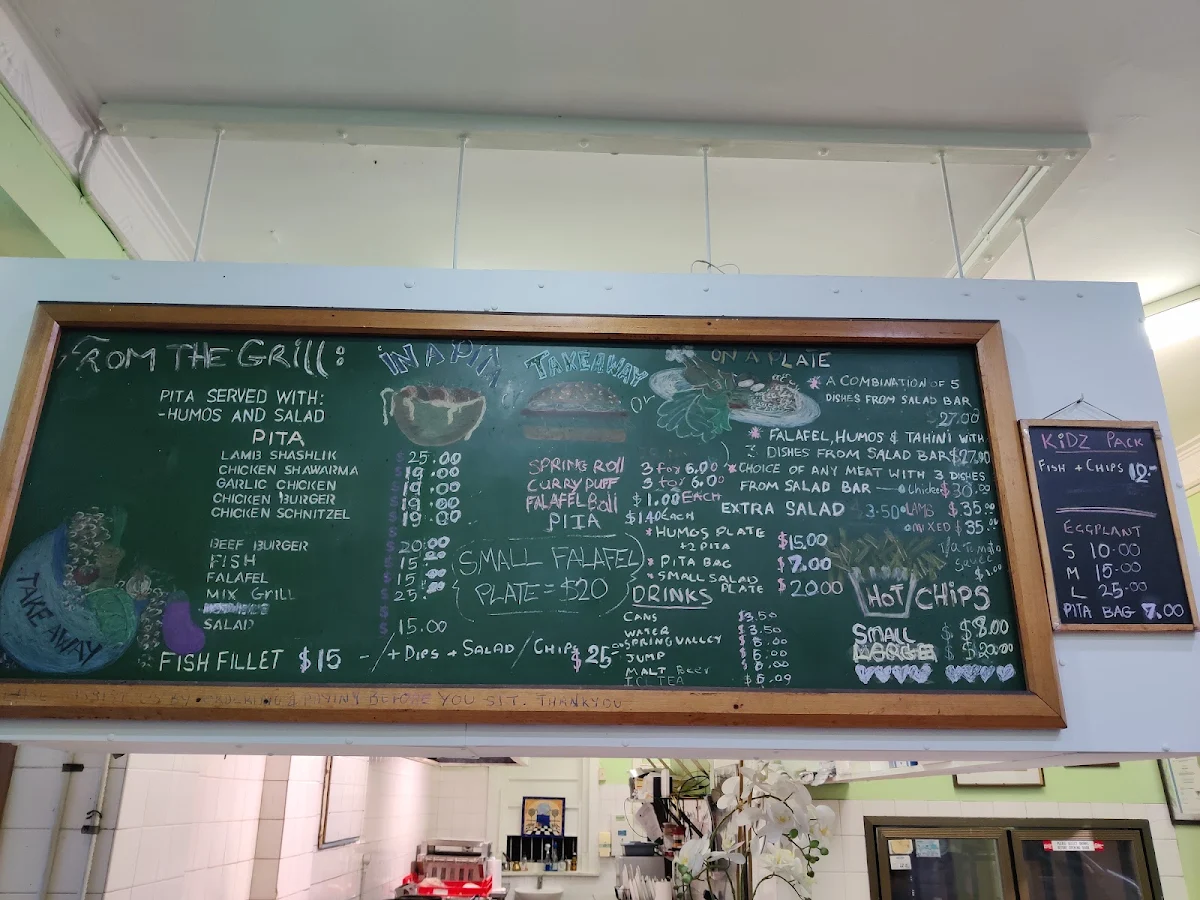 FROM THE GRILL:
PITA SERVED WITH:
-HUMOS AND SALAD
PITA
LAMB SHASHLIK 25.00
CHICKEN SHAWARMA 19.00
GARLIC CHICKEN 19.00
CHICKEN BURGER 19.00
CHICKEN SCHNITZEL 19.00
BEEF BURGER 20
FISH 15
FALAFEL 15
MIX GRILL 25
SALAD 15.00
FISH FILLET $15 -/+DIPS + SALAD / CHIPS $25
TAKE AWAY
IN A PITA
TAKEAWAY
or
ON A PLATE
SPRING ROLL 3 for 6.00
CURRY PUFF 3 for 6.00
FALAFEL Ball $1.00 EACH
PITA $1.40 EACH
SMALL FALAFEL
PLATE = $20
* A COMBINATION OF 5
DISHES FROM SALAD BAR
27.00
* FALAFEL, HUMOS & TAHINI WITH
3 DISHES FROM SALAD BAR $27.00
* CHOICE OF ANY MEAT WITH 3 DISHES
FROM SALAD BAR — chicken $30.00
EXTRA SALAD 3.50 LAMB $35.00
MIXED $35.00
* HUMOS PLATE
+2 PITA $15.00
* PITA BAG $7.00
* SMALL SALAD
PLATE $20.00
DRINKS
CANS $3.50
WATER $3.50
SPRING VALLEY
JUMP
MALT Beer
ICE TEA
Tomato
Sauce
$1.00
HOT CHIPS
SMALL $8.00
LARGE
BEFORE YOU SIT. THANKYOU
KIDZ PACK
FISH + CHIPS 12.-
EGGPLANT
S 10.00
M 15.00
L 25.00
PITA BAG 7.00